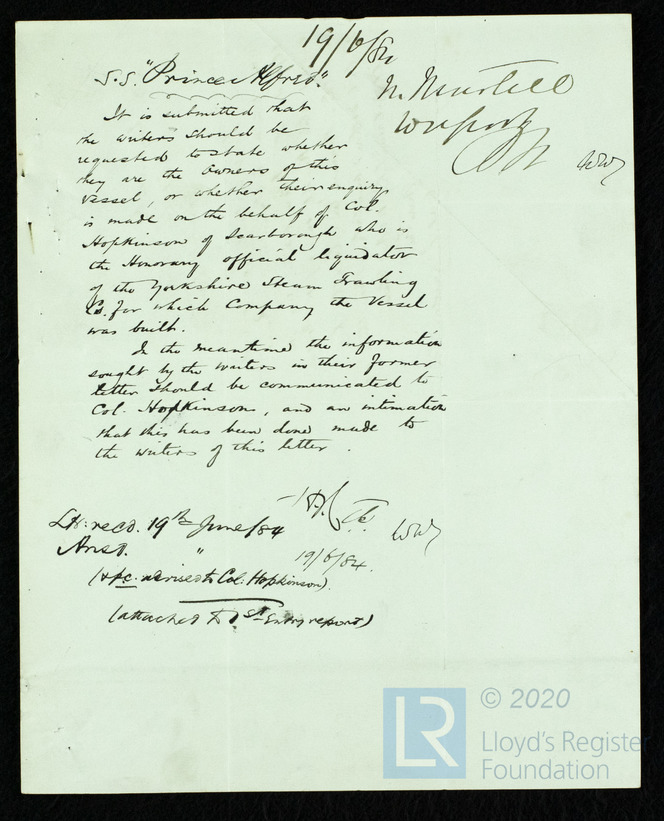 19/6/84
S.S. "Prince Alfred".
It is submitted that
the writers should be
requested to state whether
they are the owners of this
Vessel, or whether their enquiry
is made on the behalf of Col.
Hopkinson of Scarborough who is
the Honorary official liquidator
of the Yorkshire Steam Trawling
Co. for which Company the Vessel
was built.
In the meantime the information
sought by the writers in their former
letter should be communicated to
Col. Hopkinson, and an intimation
that this has been done made to
the writers of this letter.
19/6/84.
Ltr. recd. 19th June/84
Ansd. "
advised to Col. Hopkinson).
(attached to 1st Entry report)
© 2020
LR
Lloyd's Register
Foundation